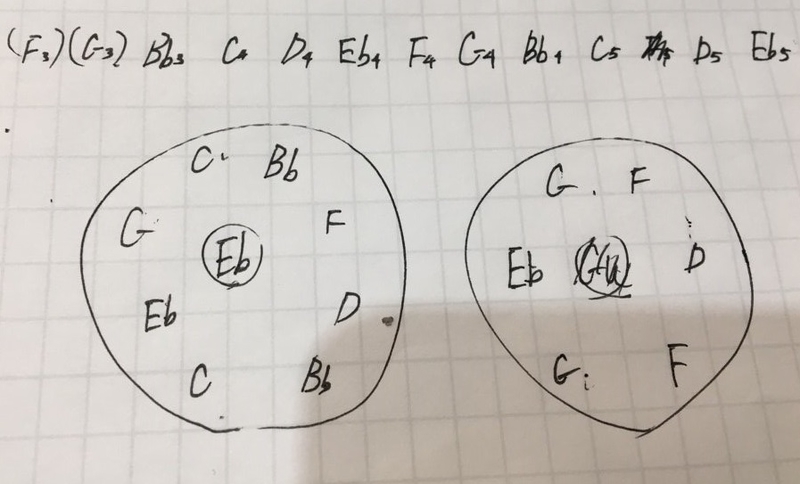 (F3) (G3) Bb3 C4 D4 Eb4 F4 G4 Bb4 C5 D5 Eb5
C Bb G F
G F Eb
Eb D
Eb D
C Bb G F